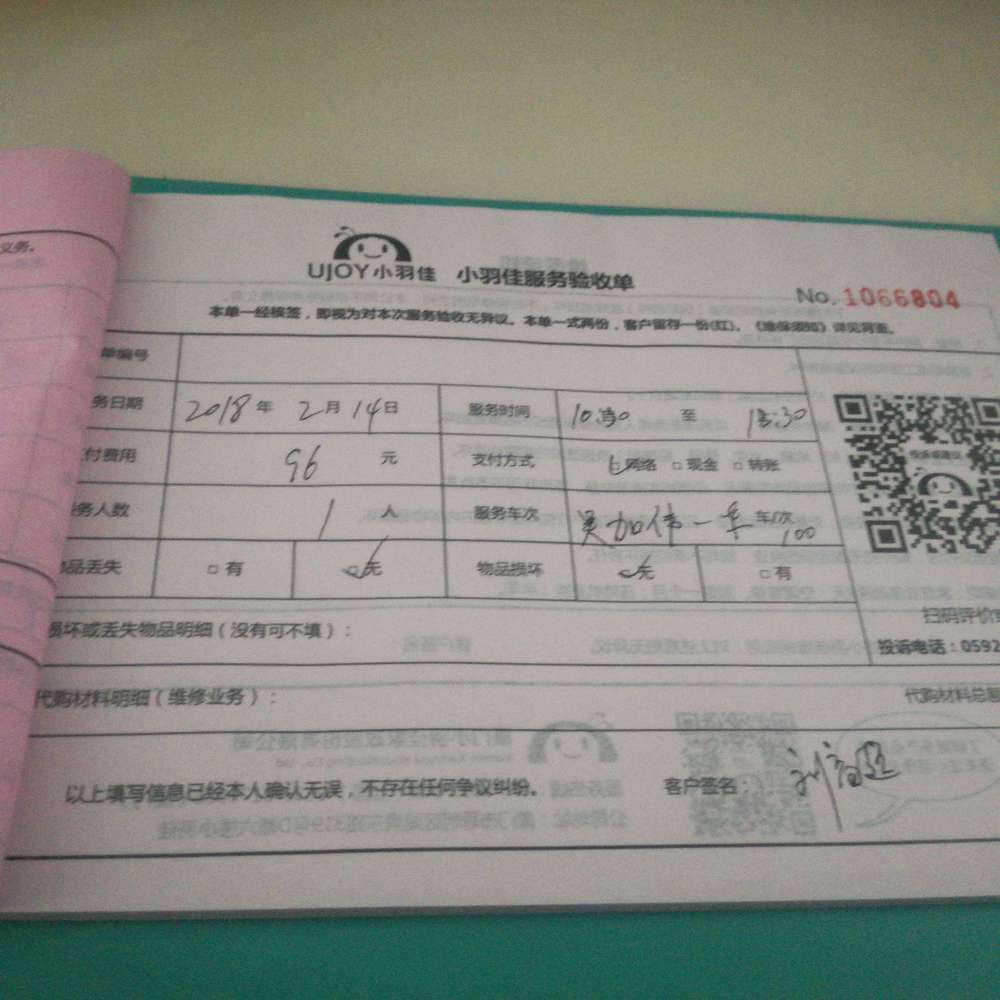 义务。
UJOY小羽佳 小羽佳服务验收单
No. 1066804
本单一经核签，即视为对本次服务验收无异议。本单一式两份，客户留存一份(红)。《维保须知》详见背面。
单编号
务日期 2018年 2月 14日 服务时间 至
付费用 96 元 支付方式 网络 □现金 □转账
务人数 1 人 服务车次 吴加伟一车 车/次 100
物品丢失 □有 □无 物品损坏 □无 □有
损坏或丢失物品明细（没有可不填）：
扫码评价
投诉电话：0592
代购材料明细（维修业务）：
代购材料总
以上填写信息已经本人确认无误，不存在任何争议纠纷。 客户签名：